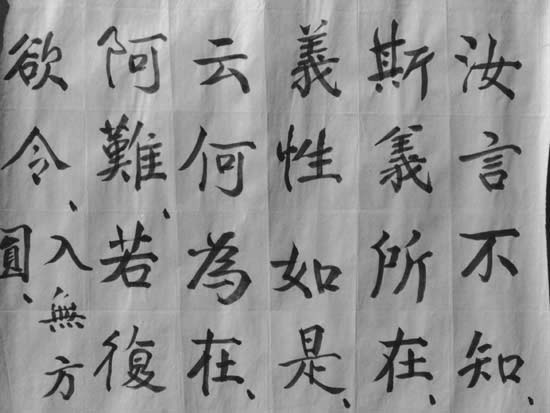 汝言不知、
斯義所在、
義性如是、
云何為在、
阿難、若復
欲令、入無方
圓、